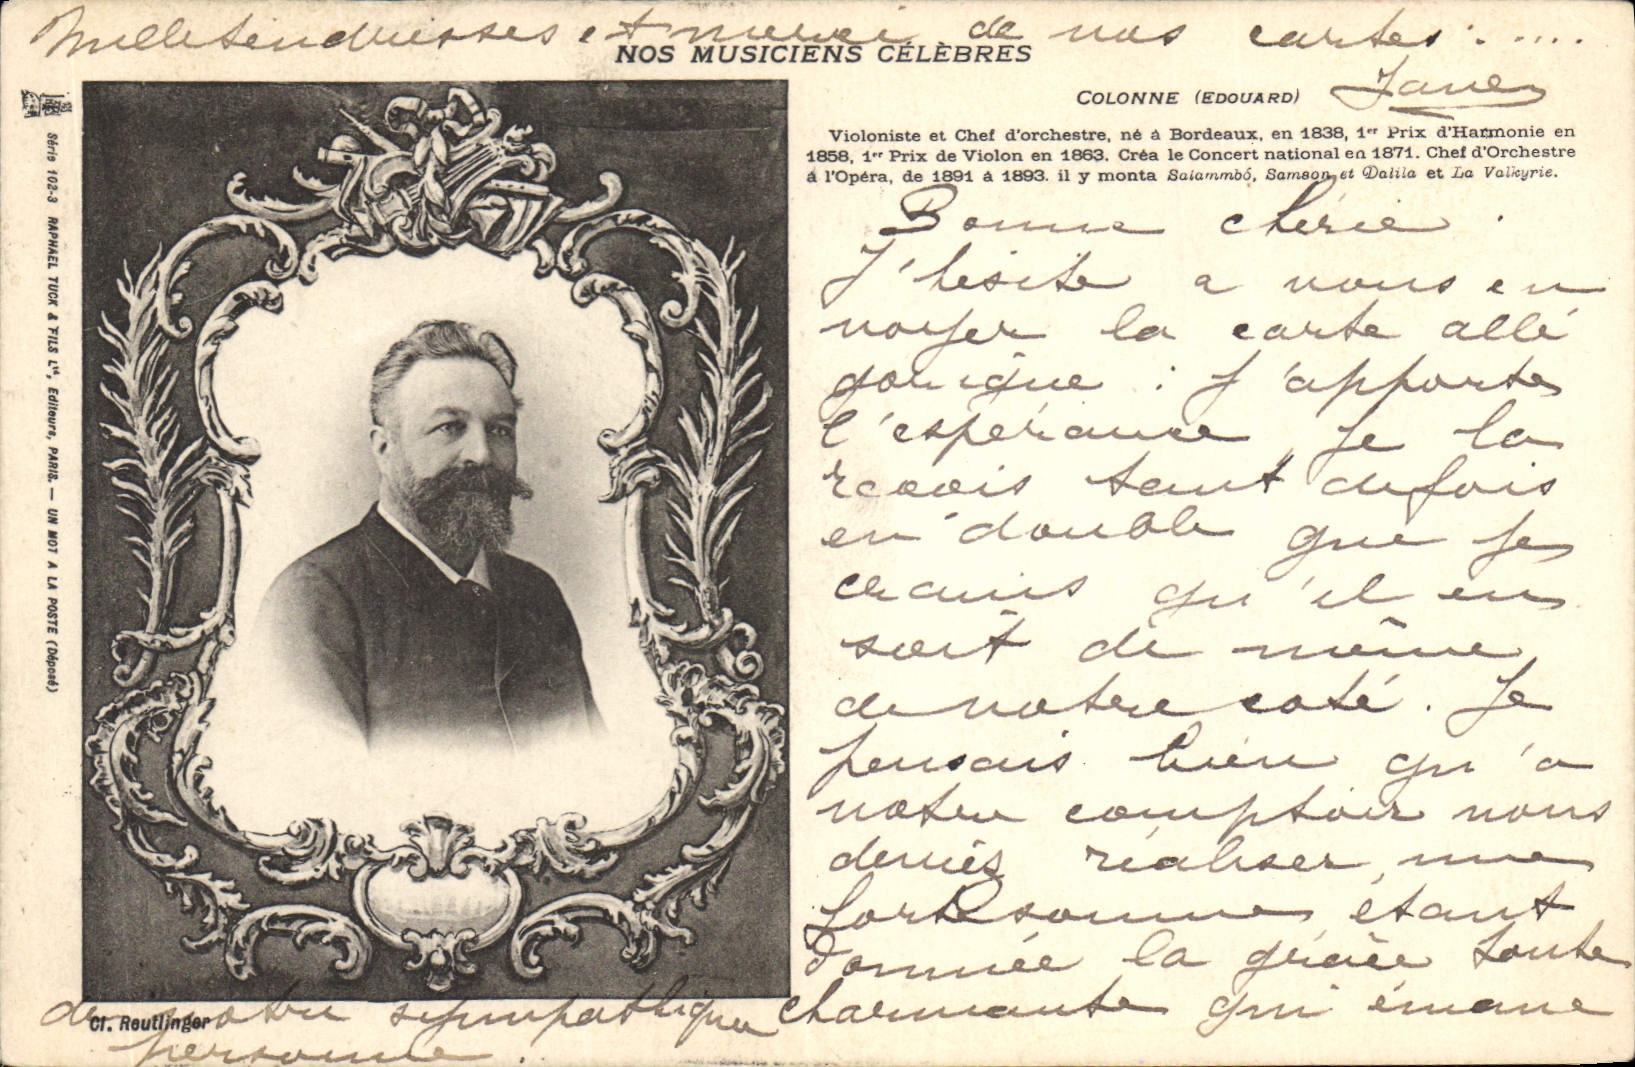 Mille tendresses et merci de vos cartes.....
Jane
NOS MUSICIENS CÉLÈBRES
COLONNE (EDOUARD)
Violoniste et Chef d'orchestre, né à Bordeaux, en 1838, 1er Prix d'Harmonie en
1858, 1er Prix de Violon en 1863. Créa le Concert national en 1871. Chef d'Orchestre
à l'Opéra, de 1891 à 1893. il y monta Salammbô, Samson et Dalila et La Valkyrie.
Série 102-3 RAPHAEL TUCK & FILS Lté, Editeurs, PARIS. — UN MOT A LA POSTE (Déposé)
Bonne chérie.
J'hésite a vous en
voyer la carte allé
gorique : J'apporte
l'espérance, je la
reçois tant de fois
en double que je
crains qu'il en
soit de même
de votre coté. Je
pensais bien qu'a
votre comptoir vous
deviés réaliser une
forte somme étant
donnée la grâce toute
charmante qui émane
de votre sympathique
personne.
Cl. Reutlinger